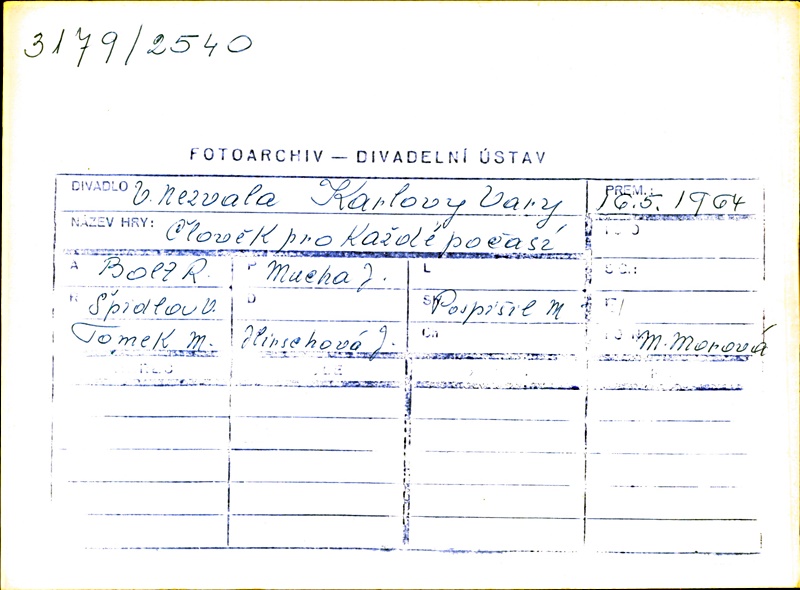 3179/2540
FOTOARCHIV — DIVADELNÍ ÚSTAV
DIVADLO V. Nezvala Karlovy Vary PREM.: 16.5. 1964
NÁZEV HRY: Člověk pro každé počasí
A Bolt R. P Mucha J. L
R Špidla V. D SK Pospíšil M
Tomek M. Hirschová J. Ch M. Morová